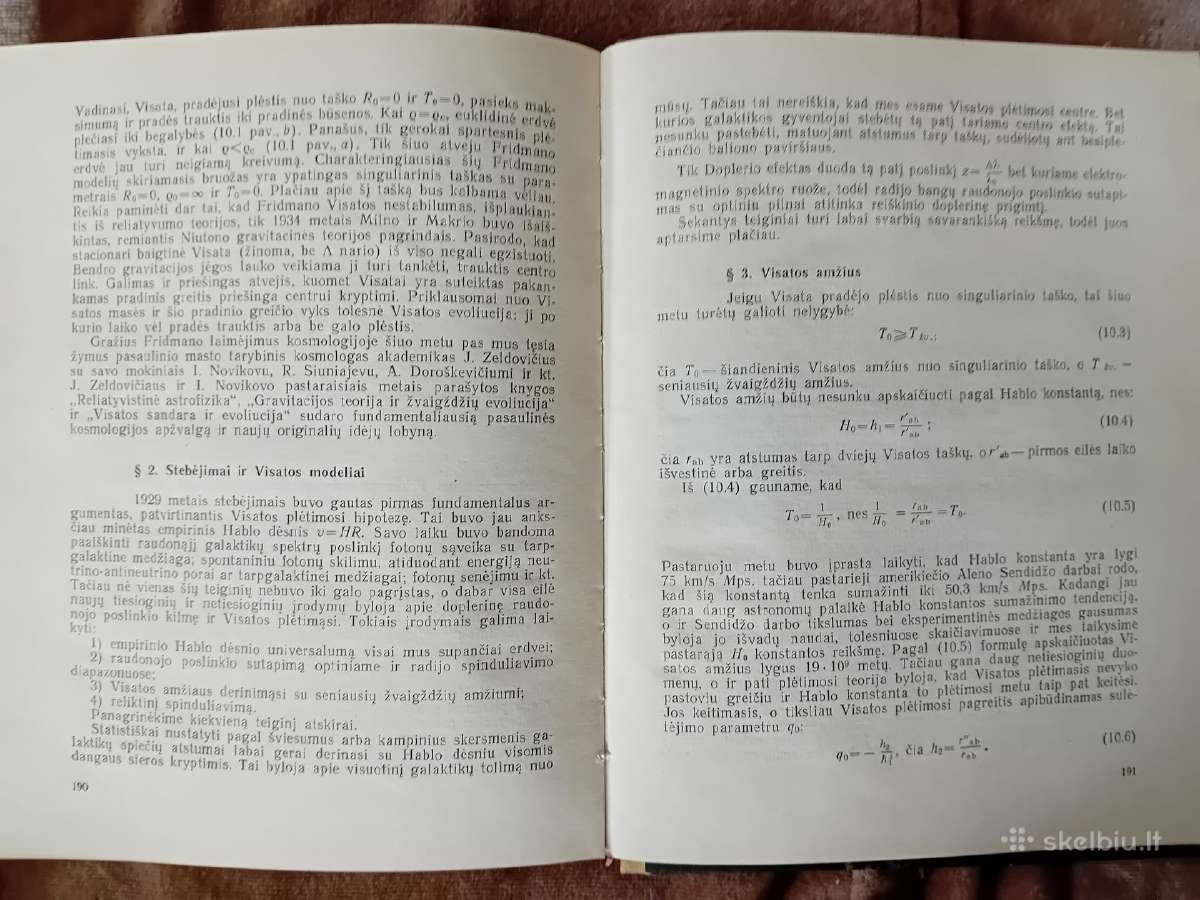 Vadinasi, Visata, pradėjusi plėstis nuo taško R₀=0 ir T₀=0, pasieks mak-
simumą ir pradės trauktis iki pradinės būsenos. Kai ϱ=ϱc, euklidinė erdvė
plečiasi iki begalybės (10.1 pav., b). Panašus, tik gerokai spartesnis plė-
timasis vyksta, ir kai ϱ<ϱc (10.1 pav., a). Tik šiuo atveju Fridmano
erdvė jau turi neigiamą kreivumą. Charakteringiausias šių Fridmano
modelių skiriamasis bruožas yra ypatingas singuliarinis taškas su para-
metrais R₀=0, ϱ₀=∞ ir T₀=0. Plačiau apie šį tašką bus kalbama vėliau.
Reikia paminėti dar tai, kad Fridmano Visatos nestabilumas, išplaukian-
tis iš reliatyvumo teorijos, tik 1934 metais Milno ir Makrio buvo išaiš-
kintas, remiantis Niutono gravitacinės teorijos pagrindais. Pasirodo, kad
stacionari baigtinė Visata (žinoma, be Λ nario) iš viso negali egzistuoti.
Bendro gravitacijos jėgos lauko veikiama ji turi tankėti, trauktis centro
link. Galimas ir priešingas atvejis, kuomet Visatai yra suteiktas pakan-
kamas pradinis greitis priešinga centrui kryptimi. Priklausomai nuo Vi-
satos masės ir šio pradinio greičio vyks tolesnė Visatos evoliucija: ji po
kurio laiko vėl pradės trauktis arba be galo plėstis.
Gražius Fridmano laimėjimus kosmologijoje šiuo metu pas mus tęsia
žymus pasaulinio masto tarybinis kosmologas akademikas J. Zeldovičius
su savo mokiniais I. Novikovu, R. Siuniajevu, A. Doroškevičiumi ir kt.
J. Zeldovičiaus ir I. Novikovo pastaraisiais metais parašytos knygos
„Reliatyvistinė astrofizika“, „Gravitacijos teorija ir žvaigždžių evoliucija“
ir „Visatos sandara ir evoliucija“ sudaro fundamentaliausią pasaulinės
kosmologijos apžvalgą ir naujų originalių idėjų lobyną.
§ 2. Stebėjimai ir Visatos modeliai
1929 metais stebėjimais buvo gautas pirmas fundamentalus ar-
gumentas, patvirtinantis Visatos plėtimosi hipotezę. Tai buvo jau anks-
čiau minėtas empirinis Hablo dėsnis v=HR. Savo laiku buvo bandoma
paaiškinti raudonąjį galaktikų spektrų poslinkį fotonų sąveika su tarp-
galaktine medžiaga; spontaniniu fotonų skilimu, atiduodant energiją neu-
trino-antineutrino porai ar tarpgalaktinei medžiagai; fotonų senėjimu ir kt.
Tačiau nė vienas šių teiginių nebuvo iki galo pagrįstas, o dabar visa eilė
naujų tiesioginių ir netiesioginių įrodymų byloja apie doplerinę raudo-
nojo poslinkio kilmę ir Visatos plėtimąsi. Tokiais įrodymais galima lai-
kyti:
1) empirinio Hablo dėsnio universalumą visai mus supančiai erdvei;
2) raudonojo poslinkio sutapimą optiniame ir radijo spinduliavimo
diapazonuose;
3) Visatos amžiaus derinimąsi su seniausių žvaigždžių amžiumi;
4) reliktinį spinduliavimą.
Panagrinėkime kiekvieną teiginį atskirai.
Statistiškai nustatyti pagal šviesumus arba kampinius skersmenis ga-
laktikų spiečių atstumai labai gerai derinasi su Hablo dėsniu visomis
dangaus sferos kryptimis. Tai byloja apie visuotinį galaktikų tolimą nuo
190
mūsų. Tačiau tai nereiškia, kad mes esame Visatos plėtimosi centre. Bet
kurios galaktikos gyventojai stebėtų tą patį tariamo centro efektą. Tai
nesunku pastebėti, matuojant atstumus tarp taškų, sudėliotų ant besiple-
čiančio baliono paviršiaus.
Tik Doplerio efektas duoda tą patį poslinkį z= Δλ/λ₀ bet kuriame elektro-
magnetinio spektro ruože, todėl radijo bangų raudonojo poslinkio sutapi-
mas su optiniu pilnai atitinka reiškinio doplerinę prigimtį.
Sekantys teiginiai turi labai svarbią savarankišką reikšmę, todėl juos
aptarsime plačiau.
§ 3. Visatos amžius
Jeigu Visata pradėjo plėstis nuo singuliarinio taško, tai šiuo
metu turėtų galioti nelygybė:
T₀⩾T žv.; (10.3)
čia T₀ — šiandieninis Visatos amžius nuo singuliarinio taško, o T žv. —
seniausių žvaigždžių amžius.
Visatos amžių būtų nesunku apskaičiuoti pagal Hablo konstantą, nes:
H₀=h₁= r′ab/r′ab ; (10.4)
čia rab yra atstumas tarp dviejų Visatos taškų, o r′ab — pirmos eilės laiko
išvestinė arba greitis.
Iš (10.4) gauname, kad
T₀= 1/H₀, nes 1/H₀ = rab/r′ab =T₀. (10.5)
Pastaruoju metu buvo įprasta laikyti, kad Hablo konstanta yra lygi
75 km/s Mps. tačiau pastarieji amerikiečio Aleno Sendidžo darbai rodo,
kad šią konstantą tenka sumažinti iki 50,3 km/s Mps. Kadangi jau
gana daug astronomų palaikė Hablo konstantos sumažinimo tendenciją,
o ir Sendidžo darbo tikslumas bei eksperimentinės medžiagos gausumas
byloja jo išvadų naudai, tolesniuose skaičiavimuose ir mes laikysime
pastarąją H₀ konstantos reikšmę. Pagal (10.5) formulę apskaičiuotas Vi-
satos amžius lygus 19·10⁹ metų. Tačiau gana daug netiesioginių duo-
menų, o ir pati plėtimosi teorija byloja, kad Visatos plėtimasis nevyko
pastoviu greičiu ir Hablo konstanta to plėtimosi metu taip pat keitėsi.
Jos keitimasis, o tiksliau Visatos plėtimosi pagreitis apibūdinamas sulė-
tėjimo parametru q₀:
q₀= − h₂/h₁², čia h₂= r″ab/rab . (10.6)
191
skelbiu.lt